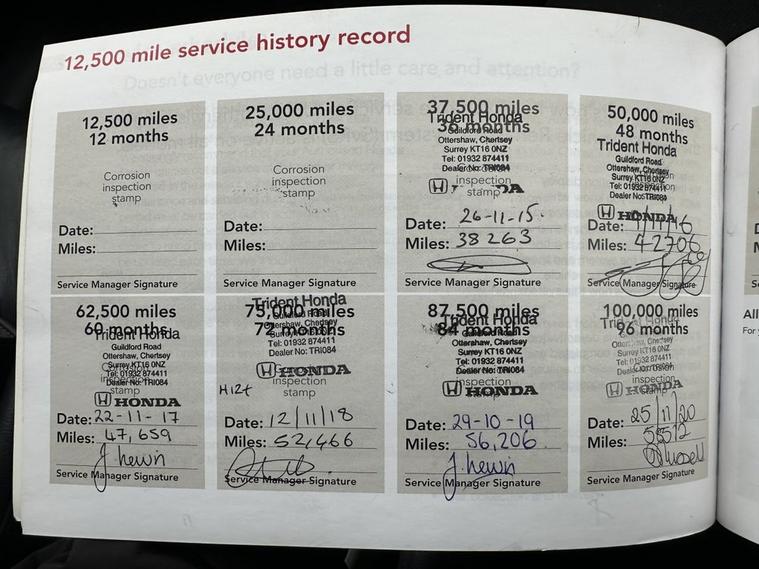 12,500 mile service history record
12,500 miles
12 months
Corrosion
inspection
stamp
Date:
Miles:
Service Manager Signature
25,000 miles
24 months
Corrosion
inspection
stamp
Date:
Miles:
Service Manager Signature
37,500 miles
Trident Honda
36 months
Guildford Road
Ottershaw, Chertsey
Surrey KT16 0NZ
Tel: 01932 874411
Dealer No: TRI084
inspection
Date: 26-11-15.
Miles: 38 263
Service Manager Signature
50,000 miles
48 months
Trident Honda
Guildford Road
Ottershaw, Chertsey
Surrey KT16 0NZ
Tel: 01932 874411
Dealer No: TRI084
HONDA
Date: /11/16
Miles: 42706
Service Manager Signature
62,500 miles
60 months
Trident Honda
Guildford Road
Ottershaw, Chertsey
Surrey KT16 0NZ
Tel: 01932 874411
Dealer No: TRI084
stamp
HONDA
Date: 22-11-17
Miles: 47,659
J. Lewin
Service Manager Signature
75,000 miles
Trident Honda
72 months
Ottershaw, Chertsey
Surrey KT16 0NZ
Tel: 01932 874411
Dealer No: TRI084
HONDA
inspection
stamp
Date: 12/11/18
Miles: 52,466
Service Manager Signature
87,500 miles
Trident Honda
84 months
Guildford Road
Ottershaw, Chertsey
Surrey KT16 0NZ
Tel: 01932 874411
Dealer No: TRI084
inspection
HONDA
Date: 29-10-19
Miles: 56,206
J. Lewin
Service Manager Signature
100,000 miles
Trident Honda
96 months
Guildford Road
Ottershaw, Chertsey
Surrey KT16 0NZ
Tel: 01932 874411
inspection
HONDA
Date: 25/11/20
Miles: 58512
Service Manager Signature
All
For